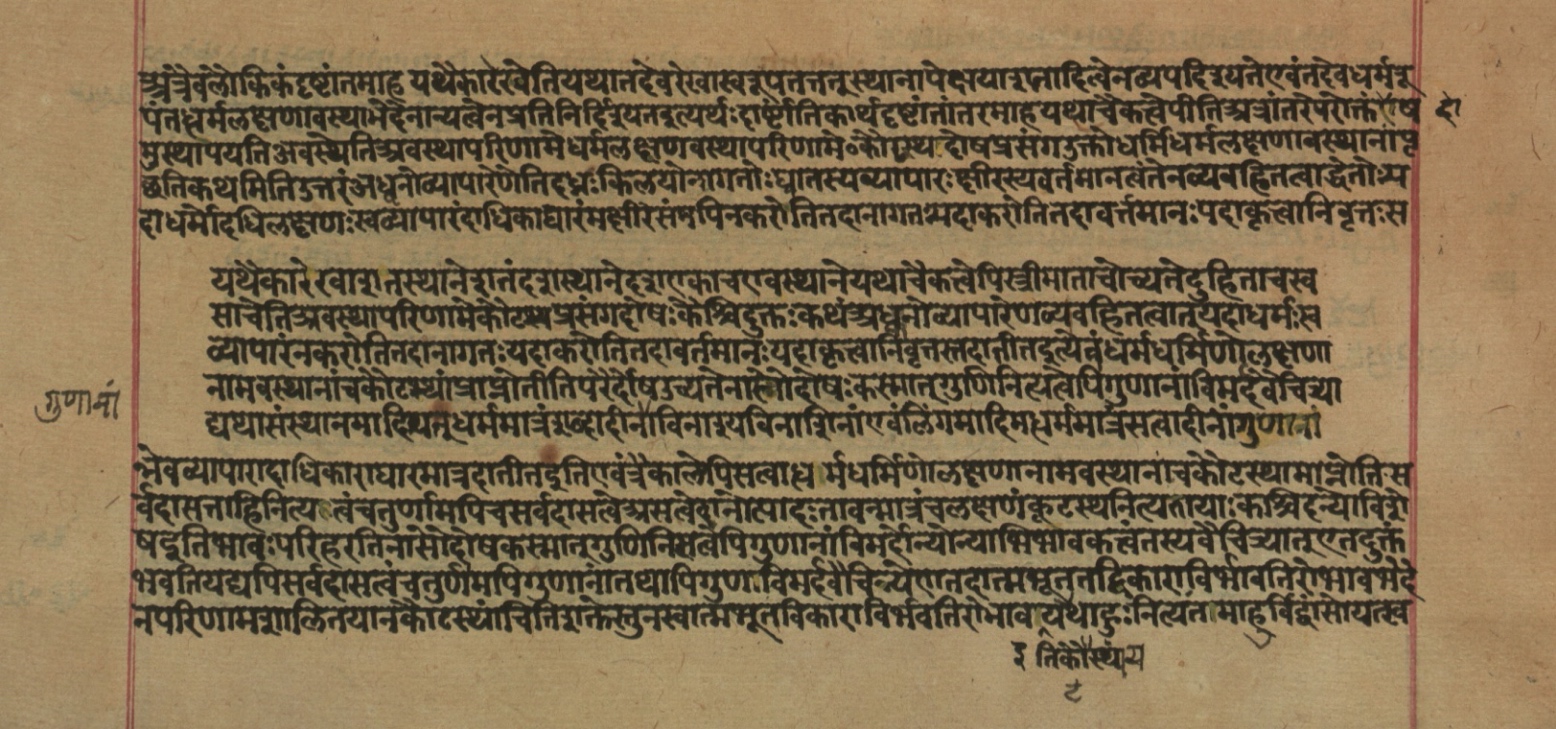 अत्रैवलौकिकंदृष्टांतमाह यथैकारेखेतियथातदेवरेखास्वरूपंतत्तत्स्थानापेक्षयाशतादित्वेनव्यपदिश्यतेएवंतदेवधर्मरू
पंतद्धर्मलक्षणावस्थाभेदेनान्यत्वेनप्रतिनिर्दिश्यतइत्यर्थः दार्ष्टांतिकार्थंदृष्टांतांतरमाहयथाचैकत्वेपीतिअत्रांतरेपरोक्तंदोष
मुत्थापयतिअवस्थेतिअवस्थापरिणामेधर्मलक्षणावस्थापरिणामेकौटस्थ्यदोषप्रसंगउक्तोधर्मिधर्मलक्षणावस्थानांपृ
च्छतिकथमितिउत्तरंअध्वनोव्यापारेणेतिदध्नःकिलयोनागतोध्वातस्यव्यापारःक्षीरस्यवर्तमानत्वंतेनव्यवहितत्वाद्धेतोःय
दाधर्मोदधिलक्षणःस्वव्यापारंदाधिकाद्यारंभंक्षीरेसंन्नपिनकरोतितदानागतःयदाकरोतितदावर्त्तमानःयदाकृत्वानिवृत्तःस
यथैकारेखाशतस्थानेशतंदशस्थानेदशएकाचएकस्थानेयथाचैकत्वेपिस्त्रीमाताचोच्यतेदुहिताचस्व
साचेतिअवस्थापरिणामेकौटस्थ्यप्रसंगदोषःकैश्चिदुक्तःकथंअध्वनोव्यापारेणव्यवहितत्वात्यदाधर्मःस्व
व्यापारंनकरोतितदानागतःयदाकरोतितदावर्तमानःयदाकृत्वानिवृत्तस्तदातीतइत्येवंधर्मधर्मिणोर्लक्षणा
नामवस्थानांचकौटस्थ्यंप्राप्नोतीतिपरैर्दोषउच्यतेनासौदोषःकस्मात्गुणिनित्यत्वेपिगुणानांविमर्दवैचित्र्या
द्यथासंस्थानमादिमत्धर्ममात्रंशब्दादीनांविनाश्यविनाशिनांएवंलिंगमादिमद्धर्ममात्रंसत्वादीनांगुणानां
गुणानां
भेवव्यापारादाधिकाराद्यारमात्रदातीतइतिएवंत्रैकालेपिसत्वाधर्मधर्मिणोर्लक्षणानामवस्थानांचकौटस्थ्यमाप्नोतिस
र्वदासत्ताहिनित्यत्वंचतुर्णामपिचसर्वदासत्वेअसत्वेवानोत्पादःतावन्मात्रंचलक्षणंकूटस्थनित्यतायाःकश्चिदन्योविशे
षइतिभावःपरिहरतिनासौदोषकस्मात्गुणिनित्यत्वेपिगुणानांविमर्दोन्योन्याभिभावकत्वंतस्यवैचित्र्यात्एतदुक्तं
भवतियद्यपिसर्वदासत्वंचतुर्णामपिगुणानांतथापिगुणविमर्दवैचित्र्येणतदात्मभूततद्विकाराविर्भावतिरोभावभेदे
नपरिणामशालितयानकौटस्थ्यंचितिशक्तेस्तुनस्वात्मभूतविकाराविर्भावतिरोभावयथाहुःनित्यंतामाहुर्विद्वांसोयत्स्व
इतिकौटस्थ्यंय